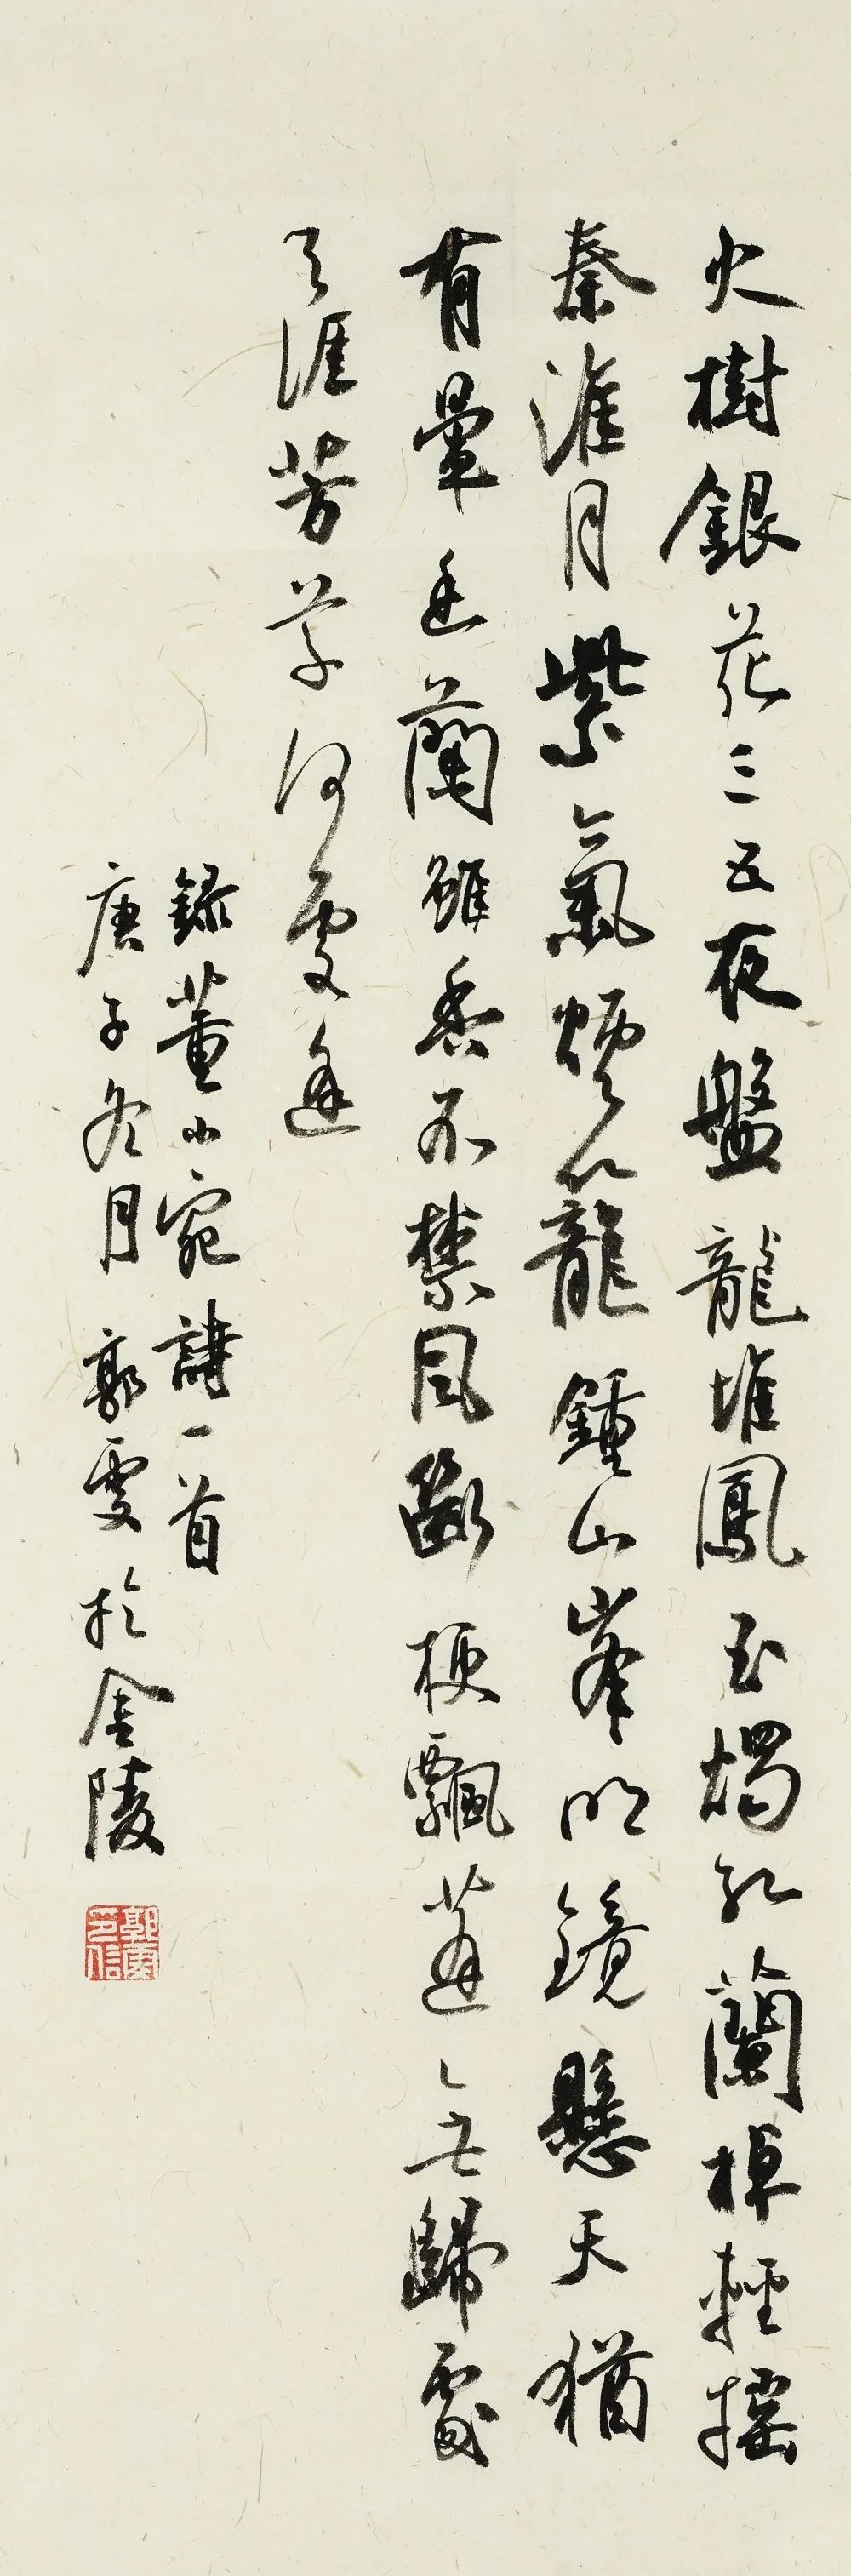 火樹銀花三五夜盤龍堆鳳玉燭紅蘭棹輕搖
秦淮月紫氣煙籠鍾山峯明鏡懸天猶
有暈玉蘭雖香不禁風斷梗飄蓬無歸處
天涯芳草何處逢
錄董小宛詩一首
庚子冬月郭雯於金陵
郭雯
印信